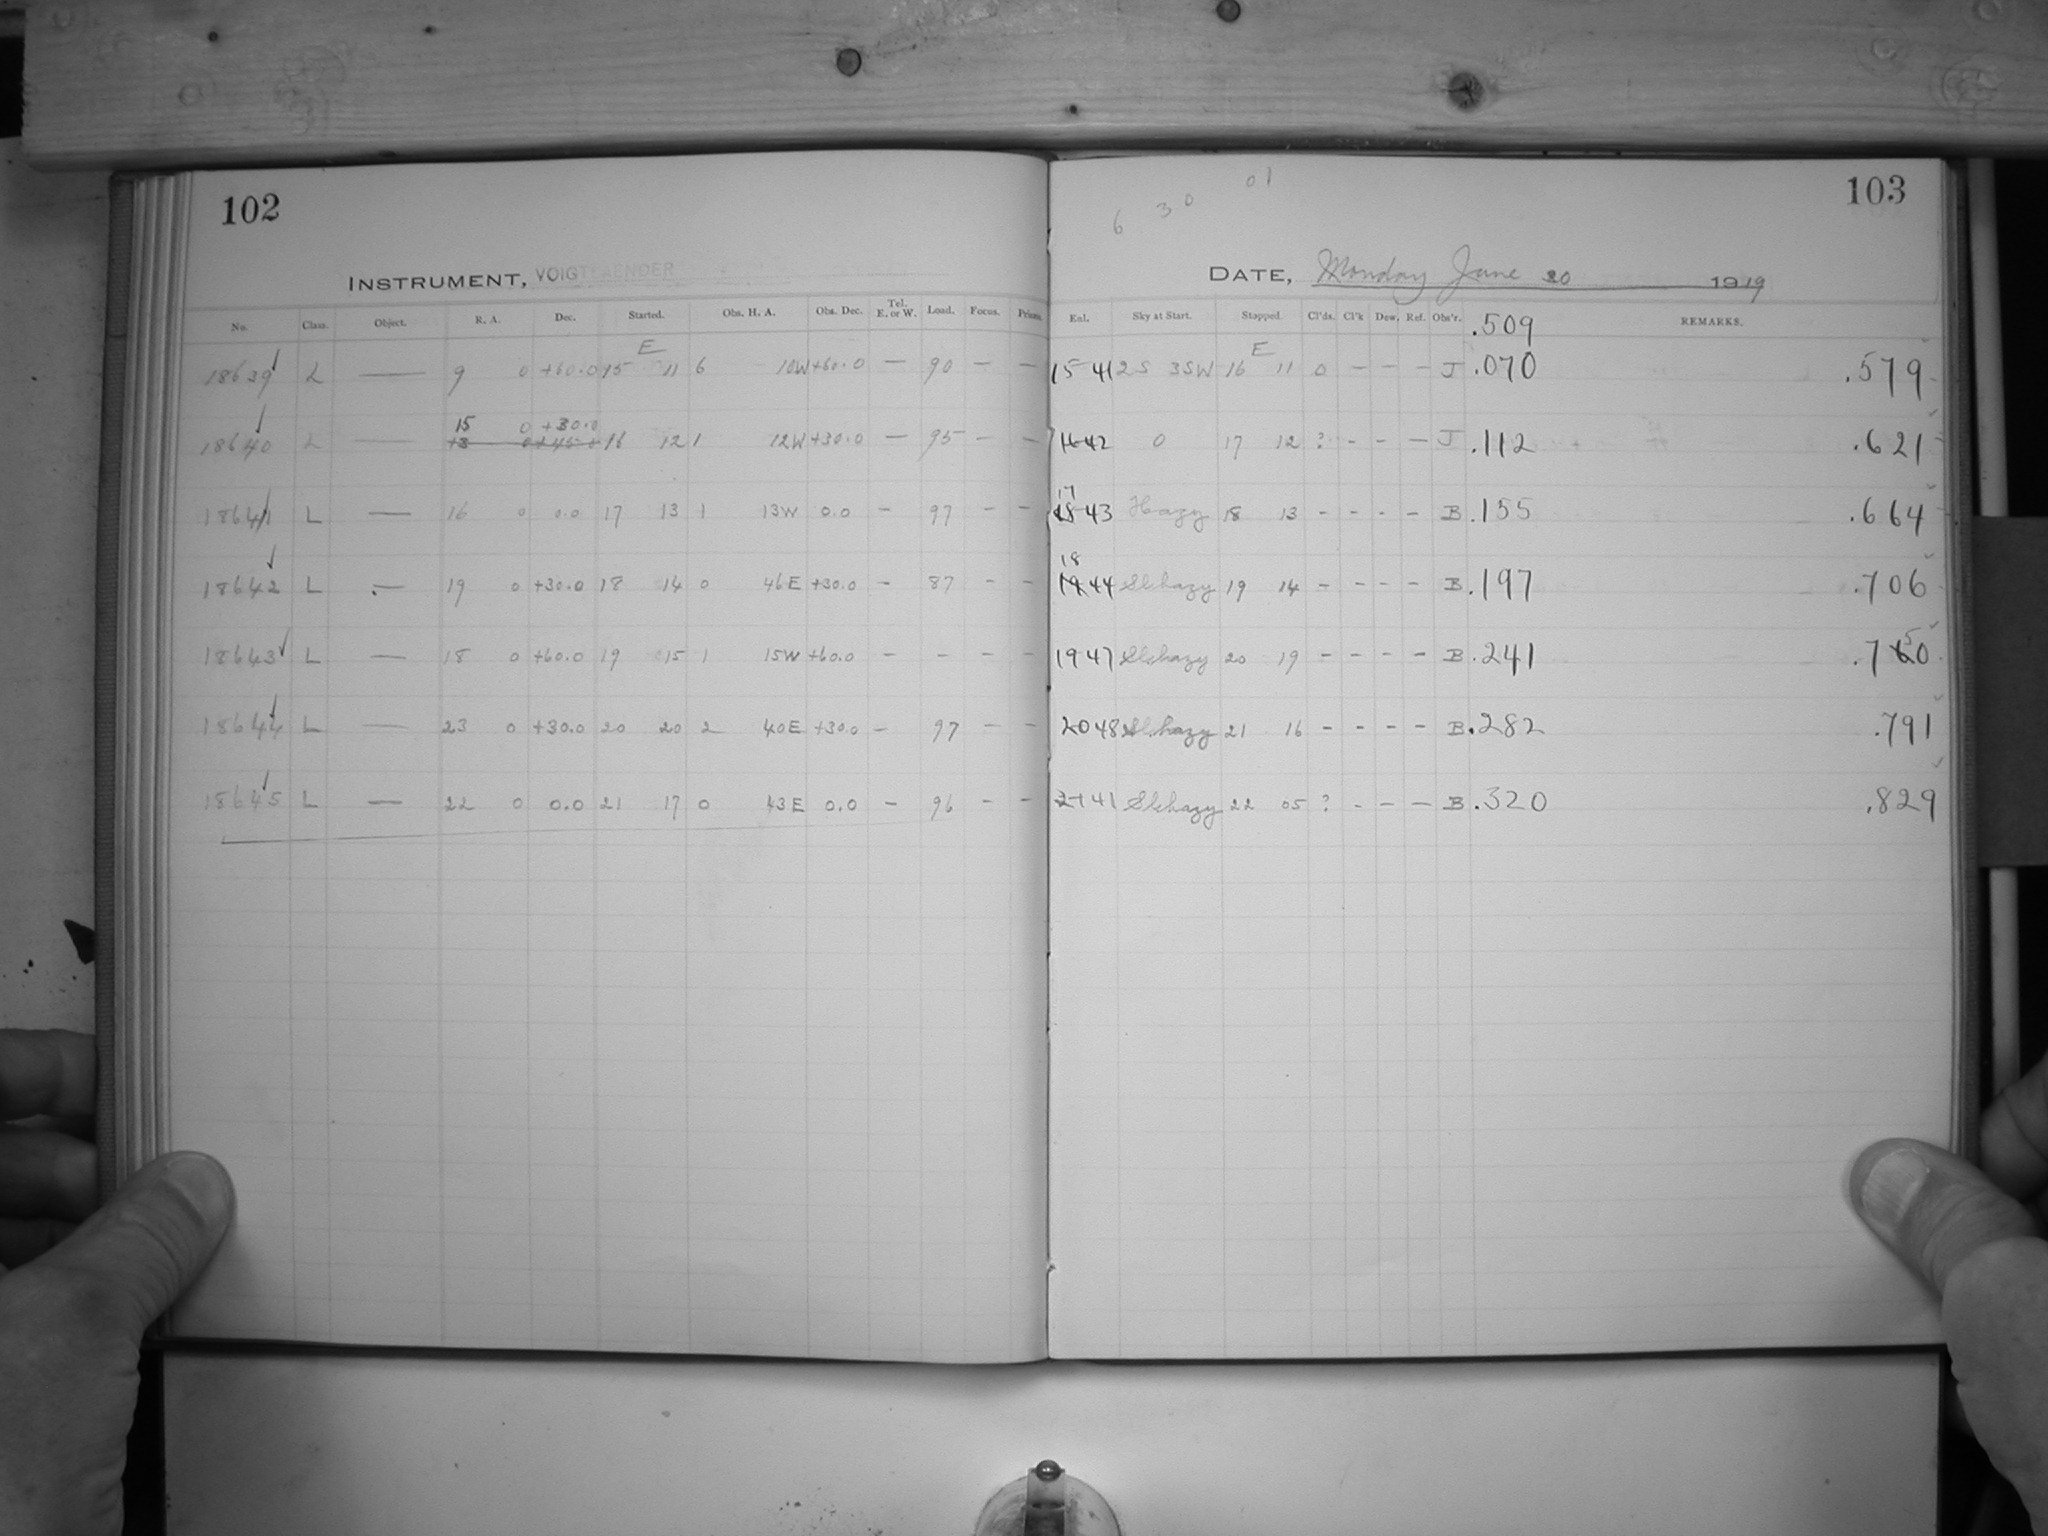 102
INSTRUMENT, VOIGTLAENDER
No. Class. Object. R. A. Dec. Started. Obs. H. A. Obs. Dec. Tel. E. or W. Load. Focus. Prisms.
E
18639 L — 9 0 +60.0 15 11 6 10W +60.0 — 90 — —
15 0 +30.0
18640 L — 13 0 +45.0 16 12 1 12W +30.0 — 95 — —
18641 L — 16 0 0.0 17 13 1 13W 0.0 - 97 - -
18642 L — 19 0 +30.0 18 14 0 46E +30.0 - 87 - -
18643 L — 18 0 +60.0 19 15 1 15W +60.0 - - - -
18644 L — 23 0 +30.0 20 20 2 40E +30.0 - 97 - -
18645 L — 22 0 0.0 21 17 0 43E 0.0 - 96 - -
6 30 01
103
DATE, Monday June 30 1919
Enl. Sky at Start. Stopped. Cl'ds. Cl'k Dew. Ref. Obs'r. .509 REMARKS.
E
15 41 2S 3SW 16 11 0 - - - J .070 .579
16 42 0 17 12 ? - - - J .112 .621
17
18 43 Hazy 18 13 - - - - B .155 .664
18
19 44 Sl.hazy 19 14 - - - - B .197 .706
19 47 Sl.hazy 20 19 - - - - B .241 .750
20 48 Sl.hazy 21 16 - - - - B .282 .791
21 41 Sl.hazy 22 05 ? - - - B .320 .829